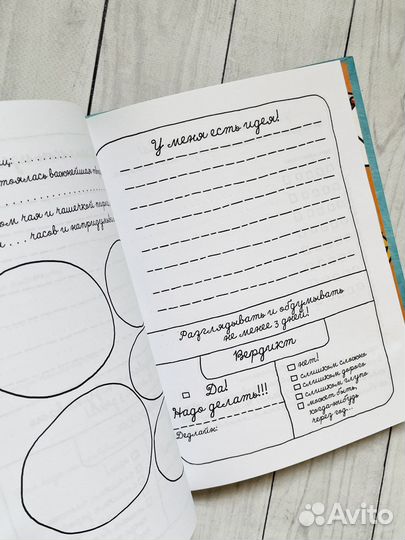 щ: . . . . . . . . .
стоялась важнейшая
ом чая и чашечкой
. . . часов и напридумы
У меня есть идея!
Разглядывать и обдумывать
не менее 3 дней!
Вердикт
Да!
Надо делать!!!
Дедлайн:
нет!
слишком сложно
слишком дорого
слишком глупо
может быть,
когда-нибудь
через год...
Avito